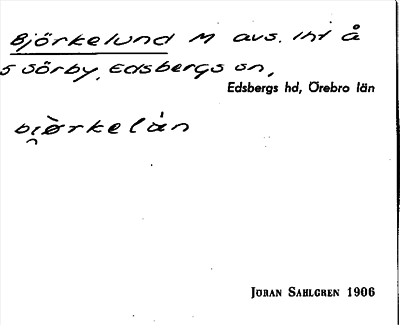 Björkelund M avs. int å
S Sörby, Edsbergs sn,
Edsbergs hd, Örebro län
bi̯ø̀rkelàn
JÖRAN SAHLGREN 1906